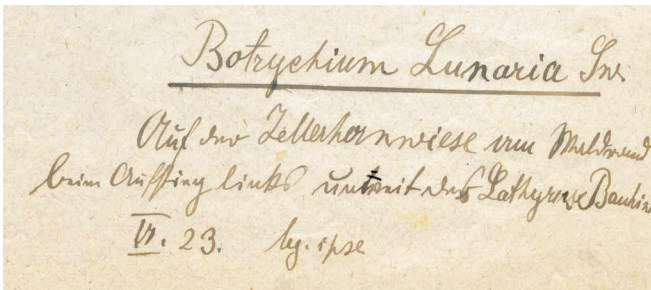 Botrychium Lunaria Sw.
Auf der Zellerhornwiese am Waldrand
beim Aufstieg links unweit des Lathyrus Bauhin
VI. 23. leg. ipse